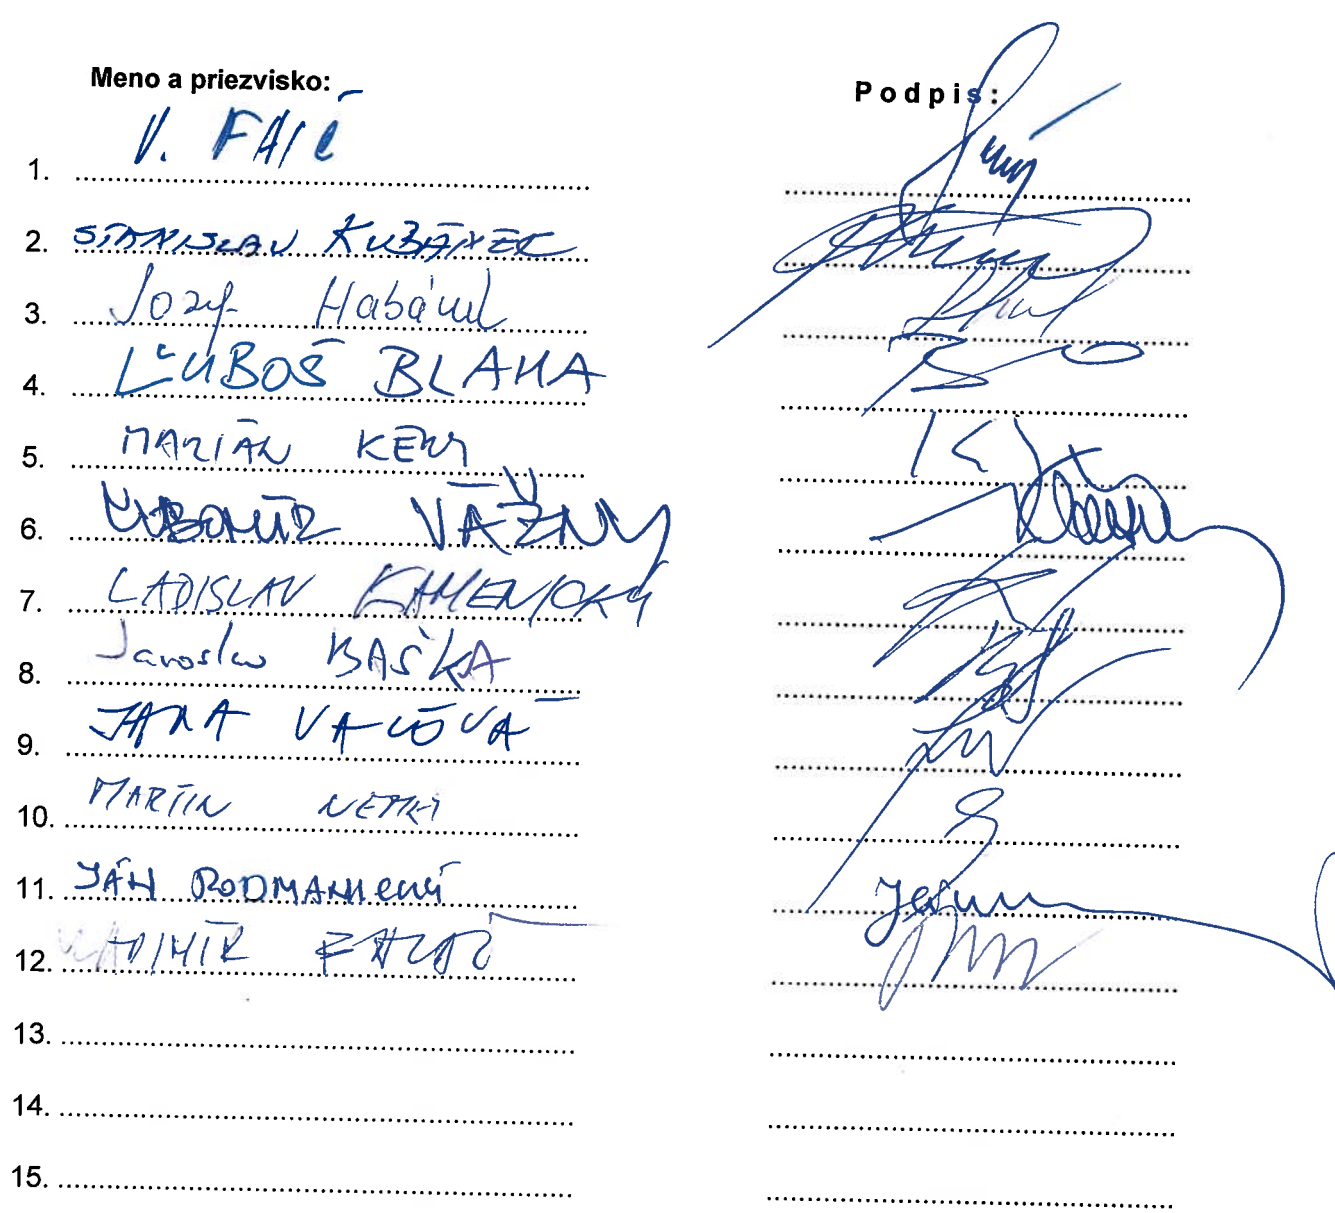 Meno a priezvisko: Podpis:
1. V. FAIČ
2. STANISLAV KUBÁNEK
3. Jozef Habánik
4. ĽUBOŠ BLAHA
5. MARIÁN KÉRY
6. ĽUBOMÍR VÁŽNY
7. LADISLAV KAMENICKÝ
8. Jaroslav BAŠKA
9. JANA VAĽOVÁ
10. MARTIN NEMKY
11. JÁN PODMANICKÝ
12. VLADIMÍR
13.
14.
15.